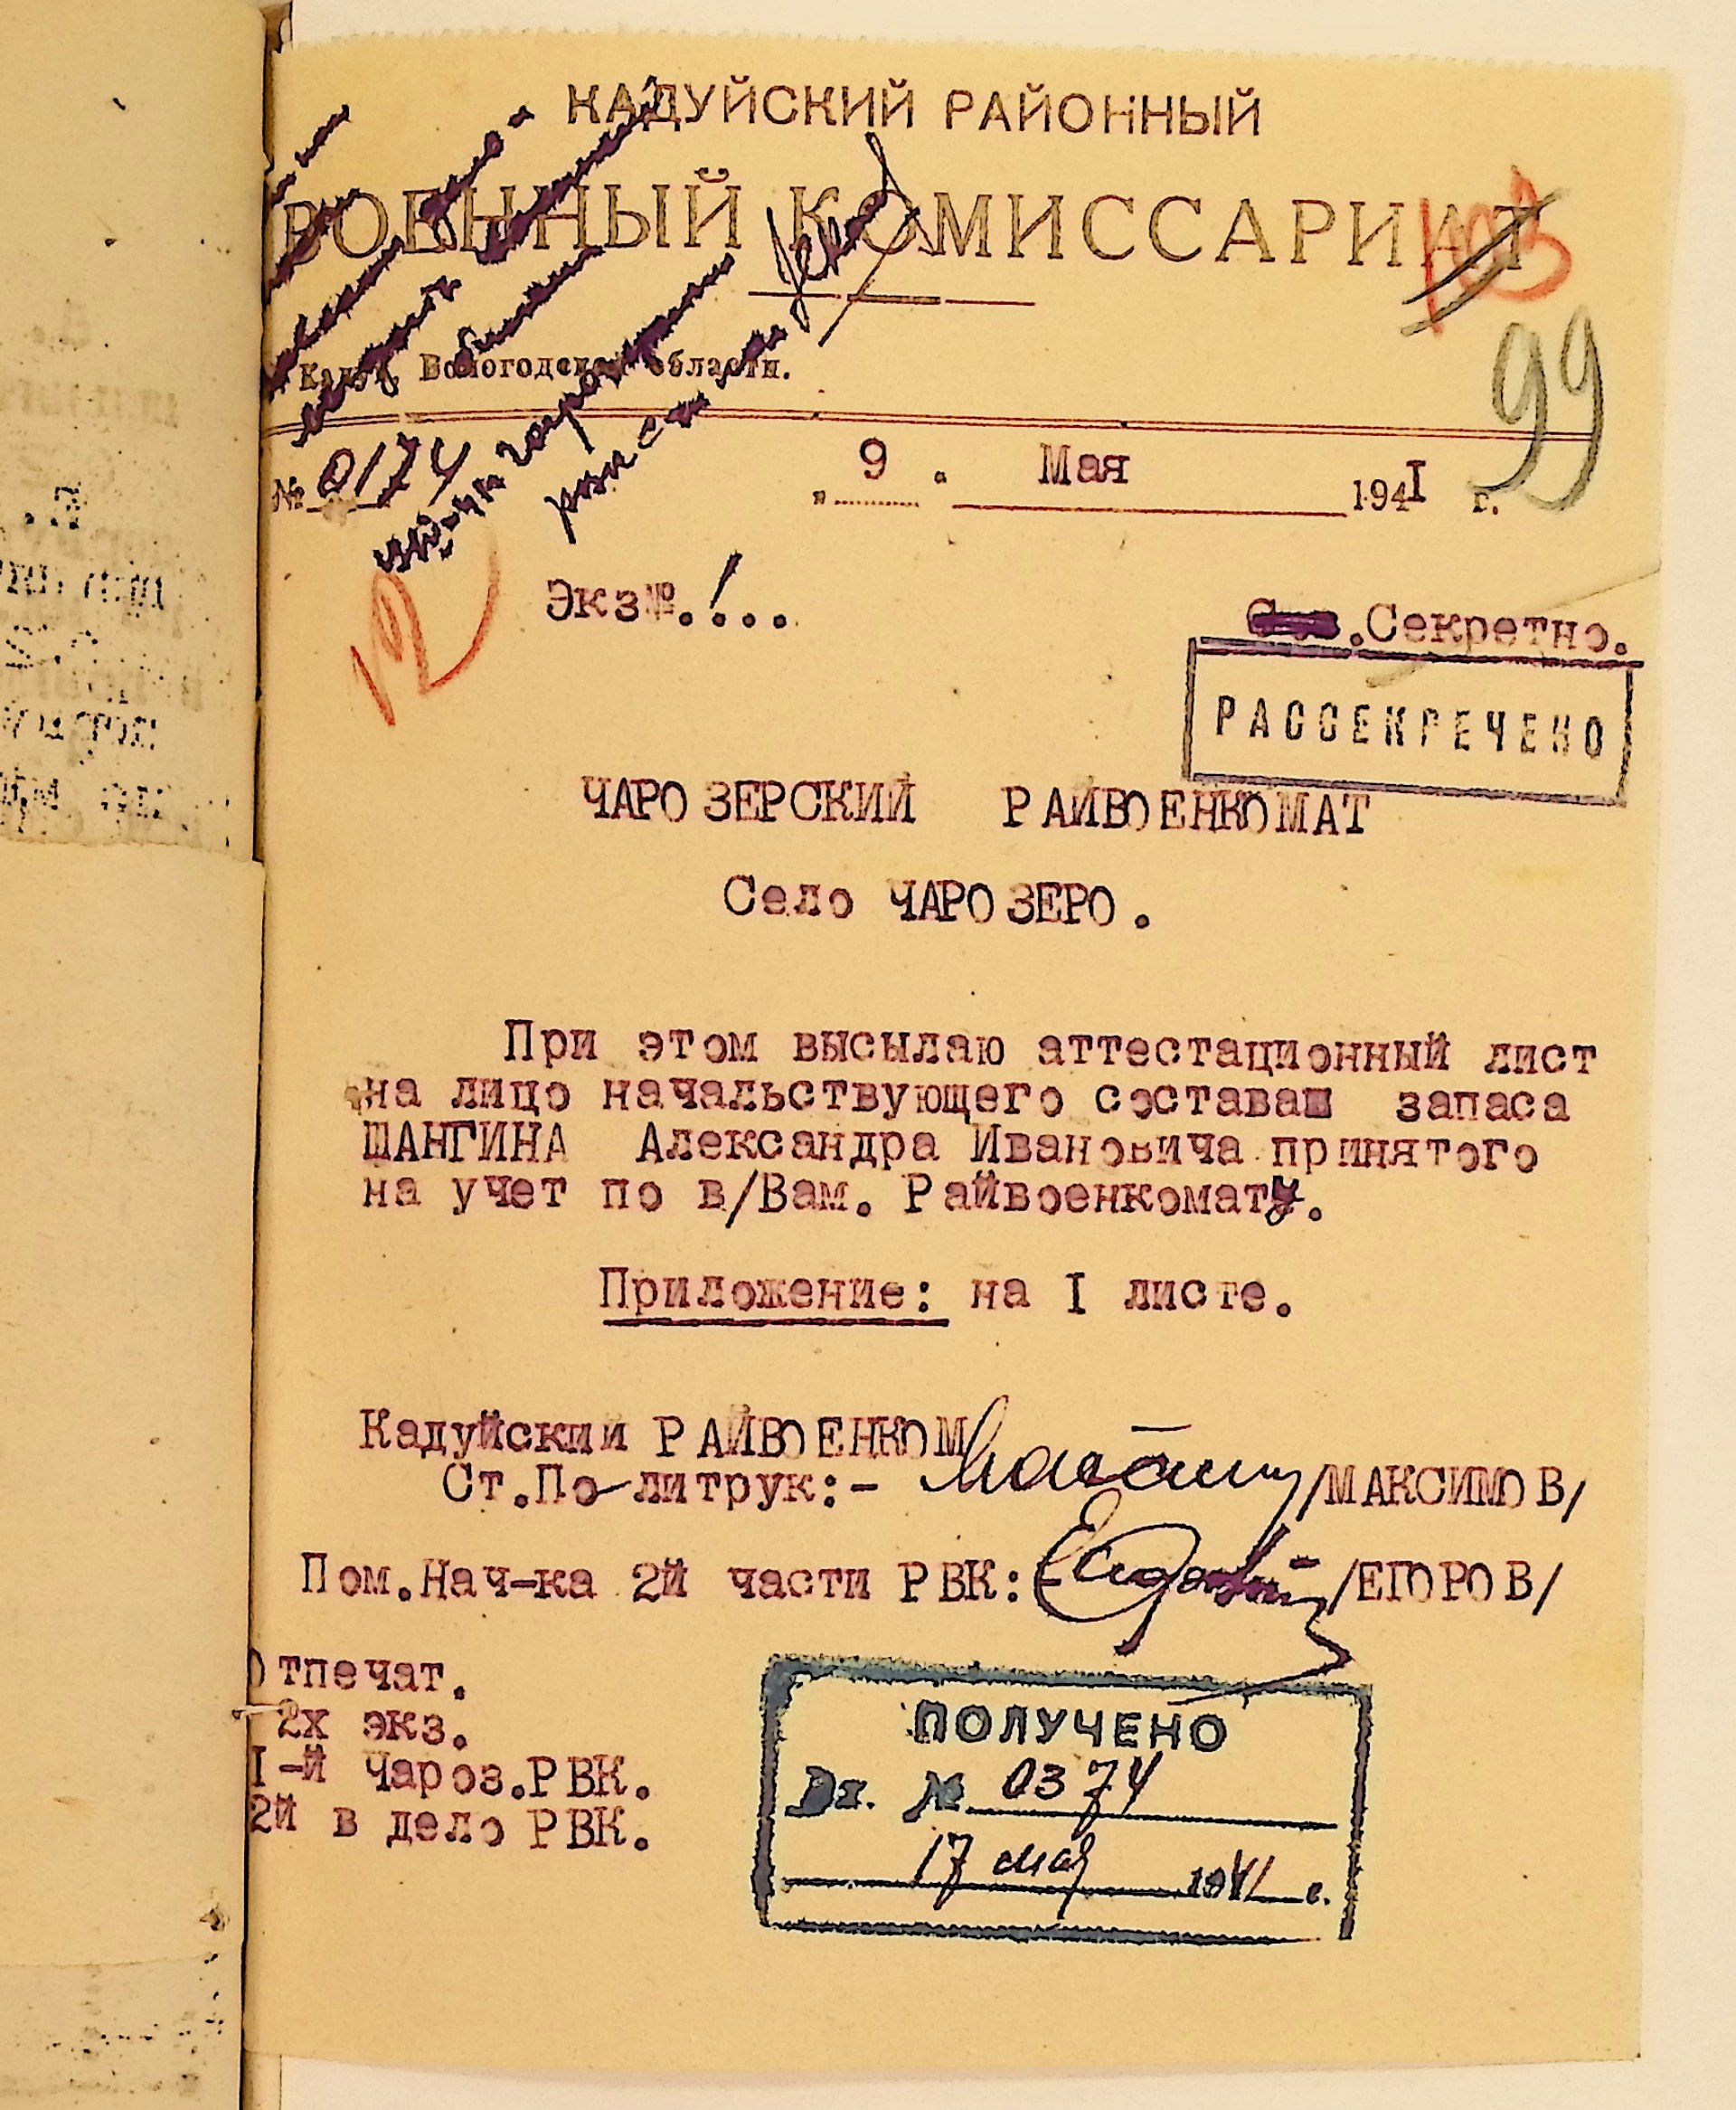 КАДУЙСКИЙ РАЙОННЫЙ
ВОЕННЫЙ КОМИССАРИАТ
103
99
Кадуй, Вологодской области.
№ 0174
„ 9 " Мая 194I г.
12
Экз№.1...
.Секретно.
РАССЕКРЕЧЕНО
ЧАРОЗЕРСКИЙ РАЙВОЕНКОМАТ
Село ЧАРОЗЕРО.
При этом высылаю аттестационный лист
на лицо начальствующего состава запаса
ШАНГИНА Александра Ивановича принятого
на учет по в/Вам. Райвоенкомату.
Приложение: на I листе.
Кадуйский РАЙВОЕНКОМ
Ст.Политрук:- /МАКСИМОВ/
Пом.Нач-ка 2й части РВК:- /ЕГОРОВ/
Отпечат.
2х экз.
I-й Чароз.РВК.
2й в дело РВК.
ПОЛУЧЕНО
Вх. № 0374
17 мая 1941 г.